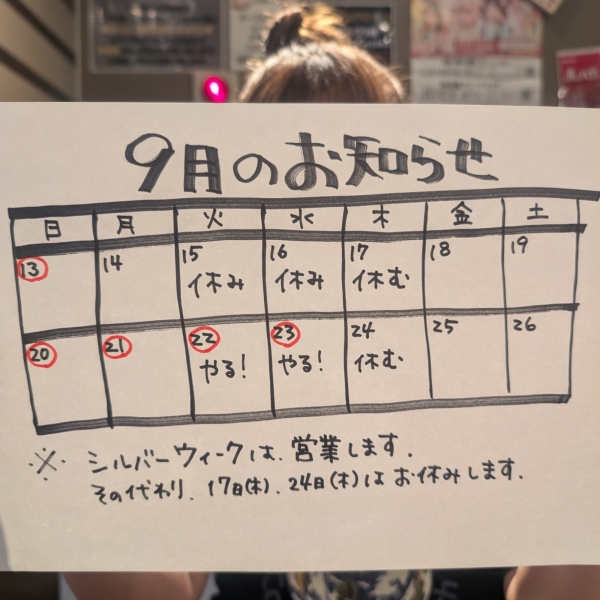 9月のお知らせ
日 月 火 水 木 金 土
13 14 15 16 17 18 19
休み 休み 休む
20 21 22 23 24 25 26
やる! やる! 休む
※ シルバーウィークは、営業します.
その代わり、17日(木)、24日(木)は お休みします.